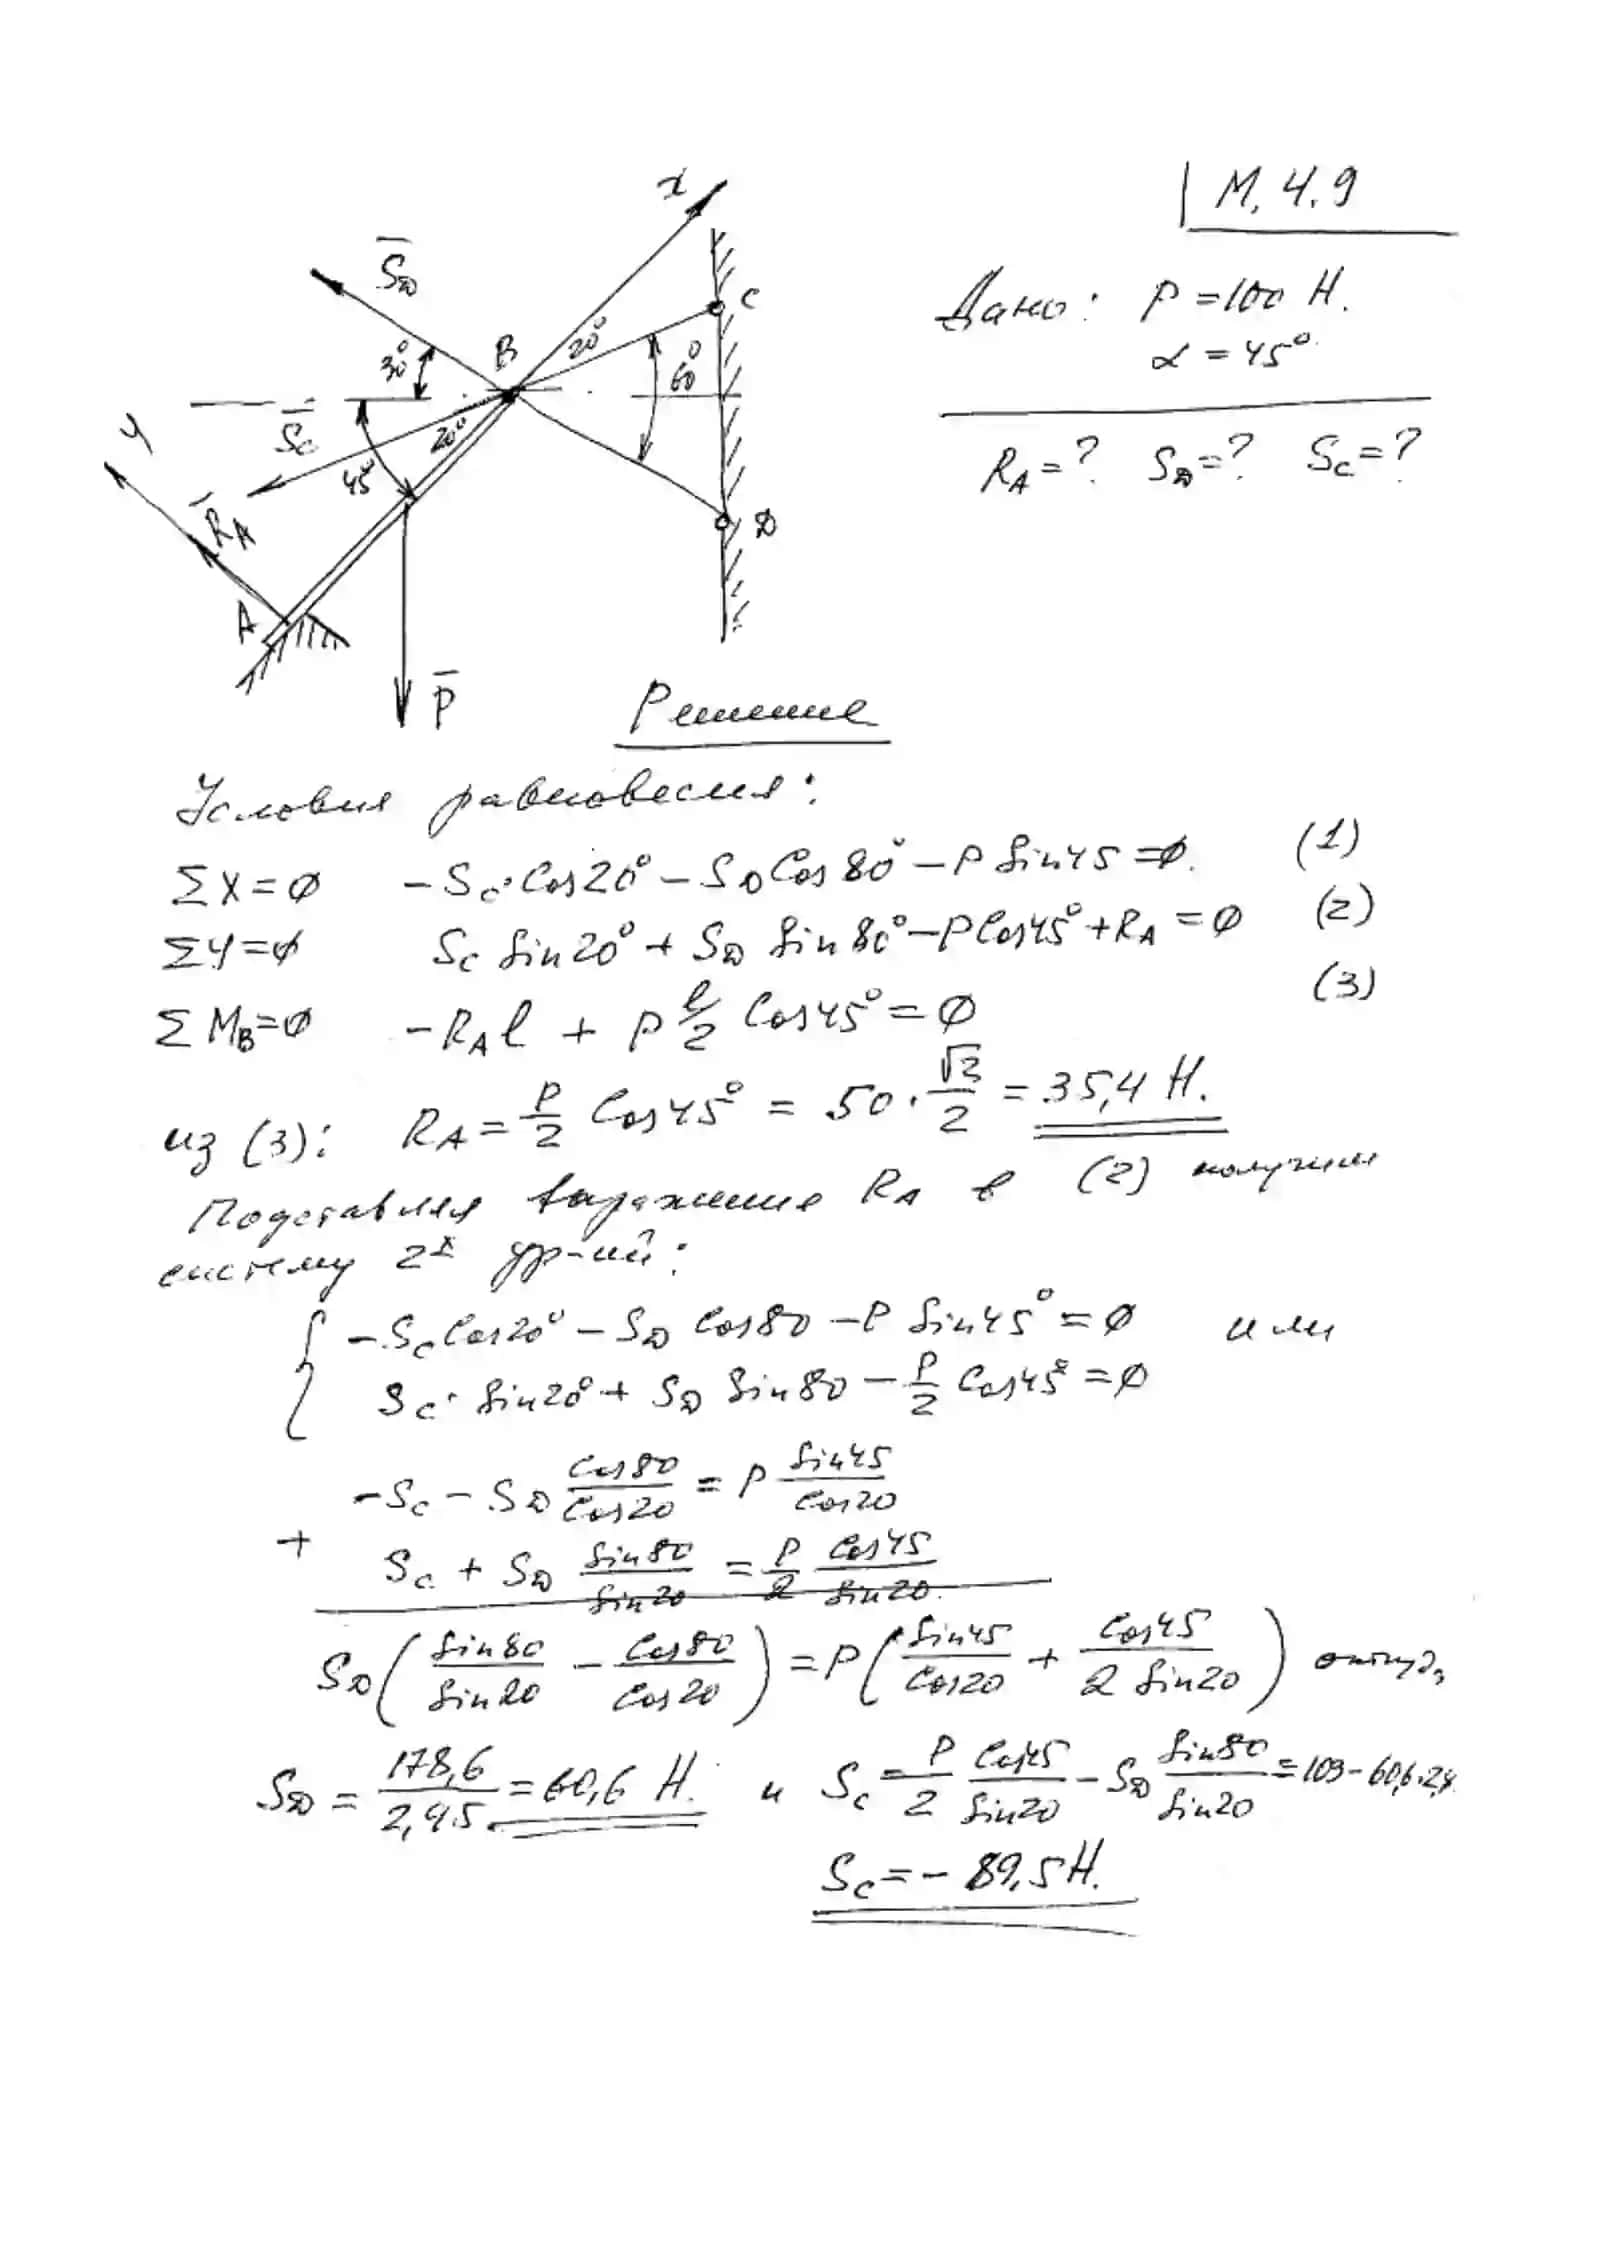 М. 4.9
Дано: P = 100 Н.
α = 45°
R_A = ? S_D = ? S_C = ?
x
S̄_D
C
B
20°
30°
60°
S̄_C
20°
y
45°
R̄_A
D
A
P̄
Решение
Условия равновесия:
ΣX = 0 -S_C·Cos20° - S_D Cos80° - P Sin45 = 0. (1)
ΣY = 0 S_C Sin20° + S_D Sin80° - P Cos45° + R_A = 0 (2)
ΣM_B = 0 -R_A l + P l/2 Cos45° = 0 (3)
из (3): R_A = P/2 Cos45° = 50·√2/2 = 35,4 Н.
Подставляя выражение R_A в (2) получим
систему 2х ур-ий:
-S_C Cos20° - S_D Cos80 - P Sin45° = 0 или
S_C· Sin20° + S_D Sin80 - P/2 Cos45° = 0
-S_C - S_D Cos80/Cos20 = P Sin45/Cos20
+ S_C + S_D Sin80/Sin20 = P/2 Cos45/Sin20.
S_D (Sin80/Sin20 - Cos80/Cos20) = P (Sin45/Cos20 + Cos45/2 Sin20) откуда
S_D = 178,6/2,95 = 60,6 Н. и S_C = P/2 Cos45/Sin20 - S_D Sin80/Sin20 = 103 - 60,6·2,9
S_C = - 89,5 Н.